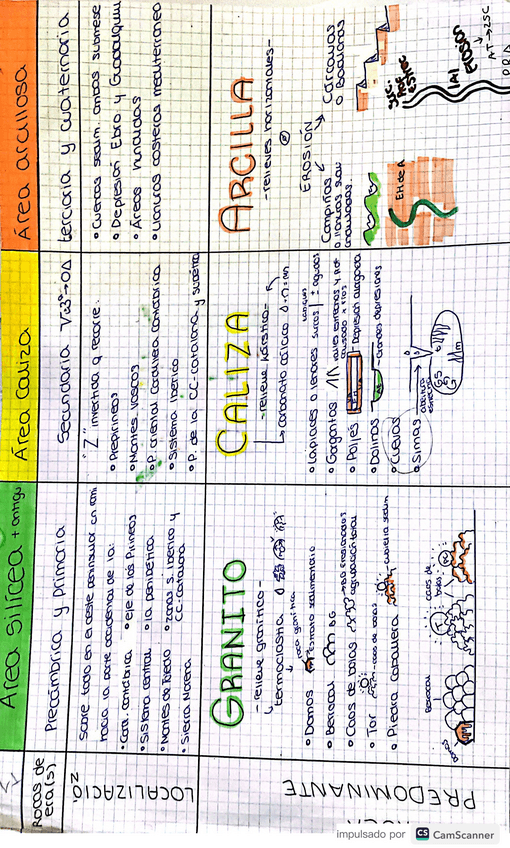 Rocas de
era(s)
Área silícea + antigu
Precámbrica y primaria
Área caliza
Secundaria
Área arcillosa
terciaria y cuaternaria
LOCALIZACIÓ
sobre todo en el oeste peninsular con
hacia la parte occidental de la:
• Cord. cantábrica
• Sistema central
• Montes de Toledo
• Sierra Morena
• eje de los Pirineos
• la penibética
• zonas S. Ibérico y
CC-catalana
"Z" invertida q recorre:
• Prepirineos
• Montes vascos
• P. oriental cordillera cantábrica
• Sistema ibérico
• P. de la CC-catalana y subbética
• Cuencas sedim ambas submese
• Depresión Ebro y Guadalqui
• Áreas hundidas
• Llanuras costeras mediterráneo
PREDOMINANTE
GRANITO
- relieve granítico -
termoclastia
roca granítica
• Domos
• Berrocal
• Caos de bolas
• Tor
caos de bolas
• Piedra Caballera
Berrocal
caos de
bolas
domos
CALIZA
- relieve kárstico -
carbonato cálcico
• Lapiaces o lenares
surcos
+ agudos
• Gargantas
valles estrechos
causado x ríos
• Poljés
Depresión alargada
• Dolinas
Grandes depresiones
• Cuevas
• Simas
ARCILLA
- relieves horizontales -
EROSIÓN
Campiñas
o llanuras suav
onduladas
Cárcavas
o Badlands
impulsado por CS CamScanner